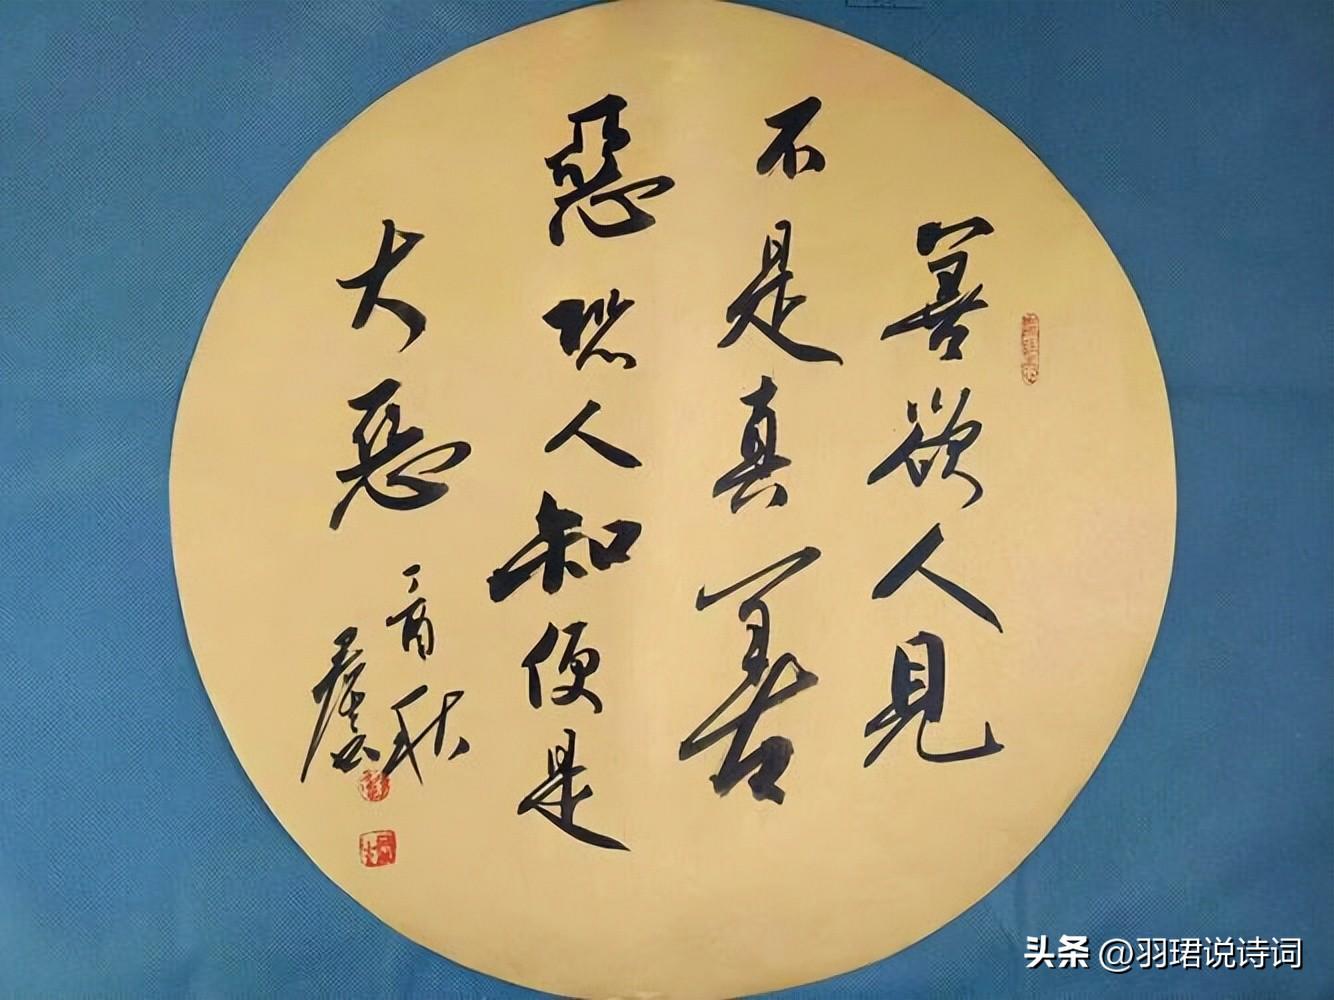 善欲人見
不是真善
惡恐人知便是
大惡
丁酉秋
头条 @羽珺说诗词